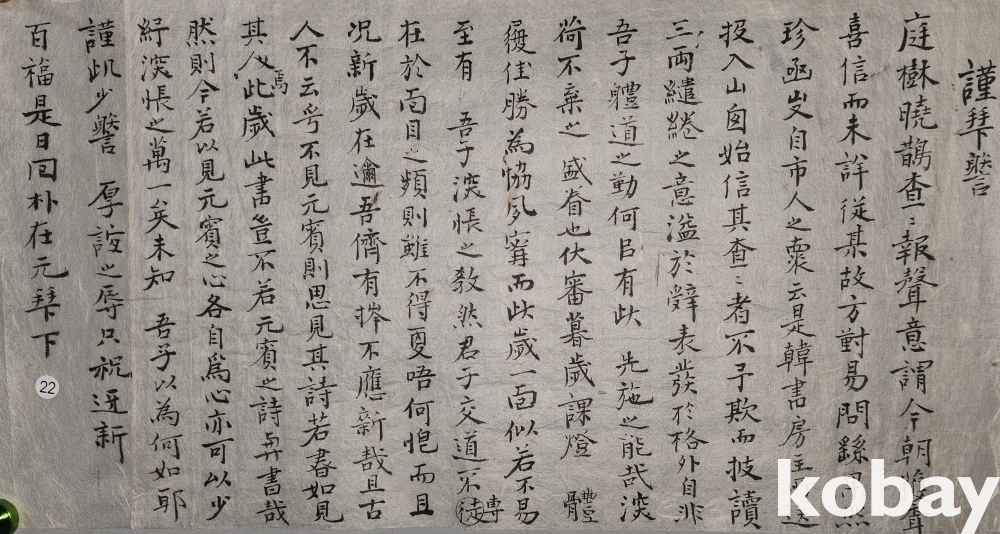 謹拜謦
庭樹曉鵲查〻報聲意謂今朝
喜信而未詳從某故方對易問繇
珍函忽自市人之橐云是韓書房主
投入山囱始信其查〻者不予欺而披讀
三両繾綣之意溢於辭表發於格外自非
吾子軆道之勤何㠯有此 先施之能哉淡
荷不棄之 盛眷也伏審暮歲課燈 體
履佳勝為恊夙窵而此歲一面似若不易
至有 吾子淡悵之敎然君子交道不專
在於面目之頻則雖不得更唔何悒而且
况新歲在邇吾儕有擠不應新哉且古
人不云乎不見元賓則思見其詩若書如見
其人焉此歲此書豈不若元賓之詩與書哉
然則今若以見元賓之心各自爲心亦可以少
紓淡悵之萬一矣未知 吾子以為何如耶
謹此少謦 厚誼之辱只祝迓新
百福是日回朴在元拜下
22
kobay